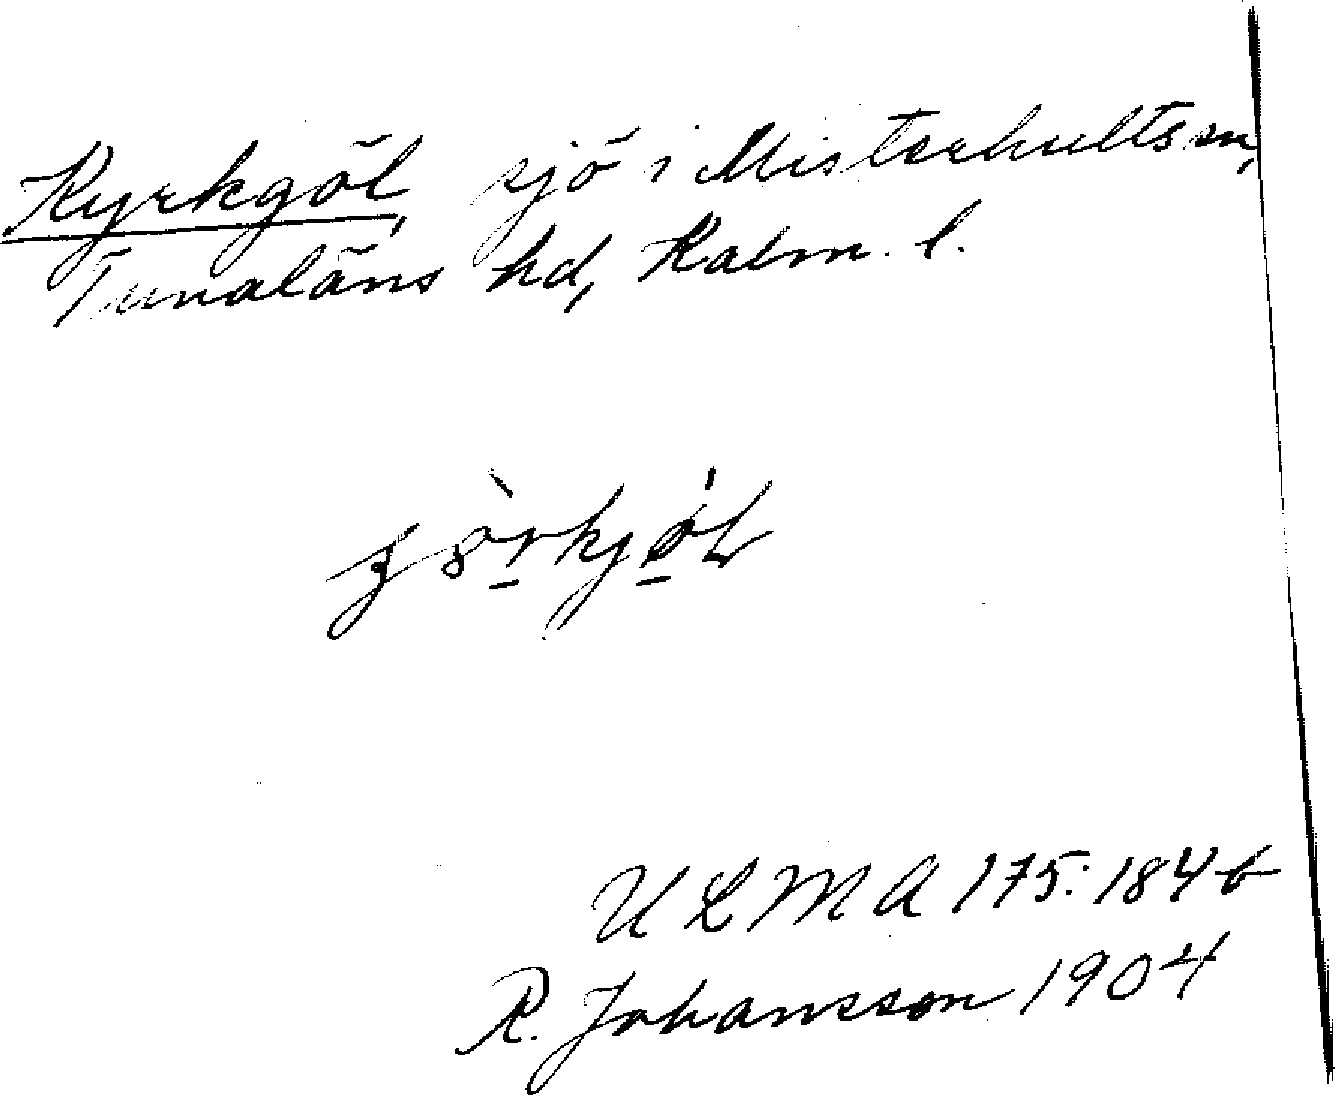 Kyrkgöl, sjö i Misterhults sn,
Tunaläns hd, Kalm. l.
ULMA 175:184 b
R. Johansson 1904